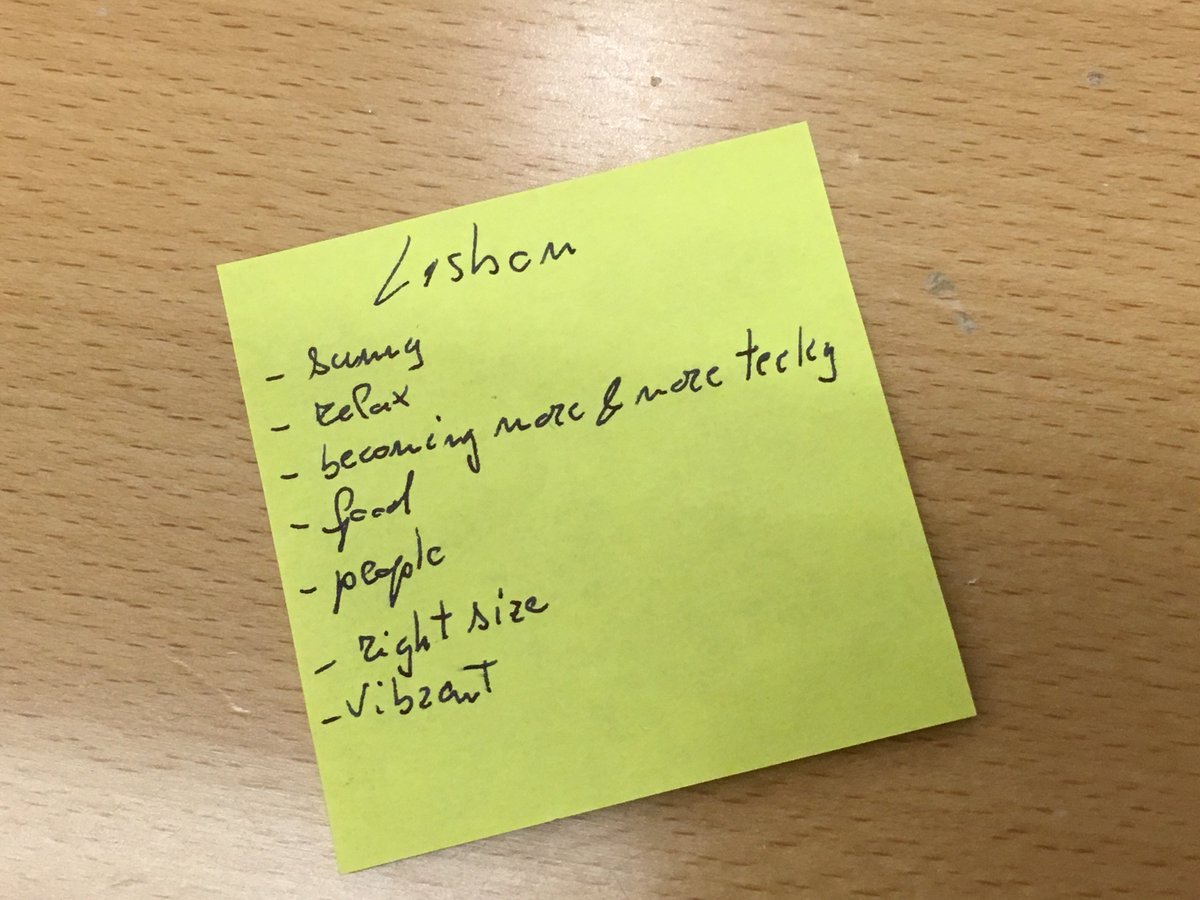 Lisbon
- sunny
- relax
- becoming more & more techy
- food
- people
- right size
- vibrant